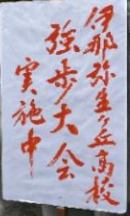 伊那弥生ヶ丘高校
強歩大会
実施中